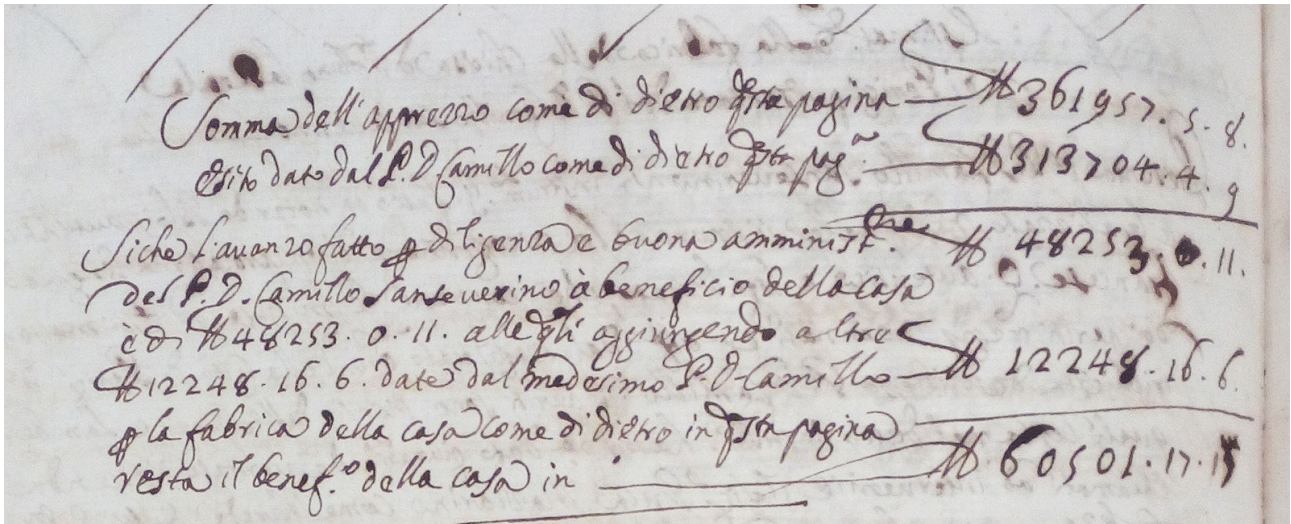 Somma dell'apprezzo come di dietro qsta pagina ₶ 361957. 5. 8.
Esito dato dal P. D. Camillo come di dietro qsta pag.ª ₶ 313704. 4. 9
Siche l'auanzo fatto ꝑ diligenza e buona amminist.ne ₶ 48253. 0. 11.
del P. D. Camillo Sanseuerino à beneficio della casa
è di ₶ 48253. 0. 11. alle qli aggiungendo altre
₶ 12248. 16. 6. date dal medesimo P. D. Camillo ₶ 12248. 16. 6.
ꝑ la fabrica della casa come di dietro in qsta pagina
resta il benef.º della casa in ₶ 60501. 17.